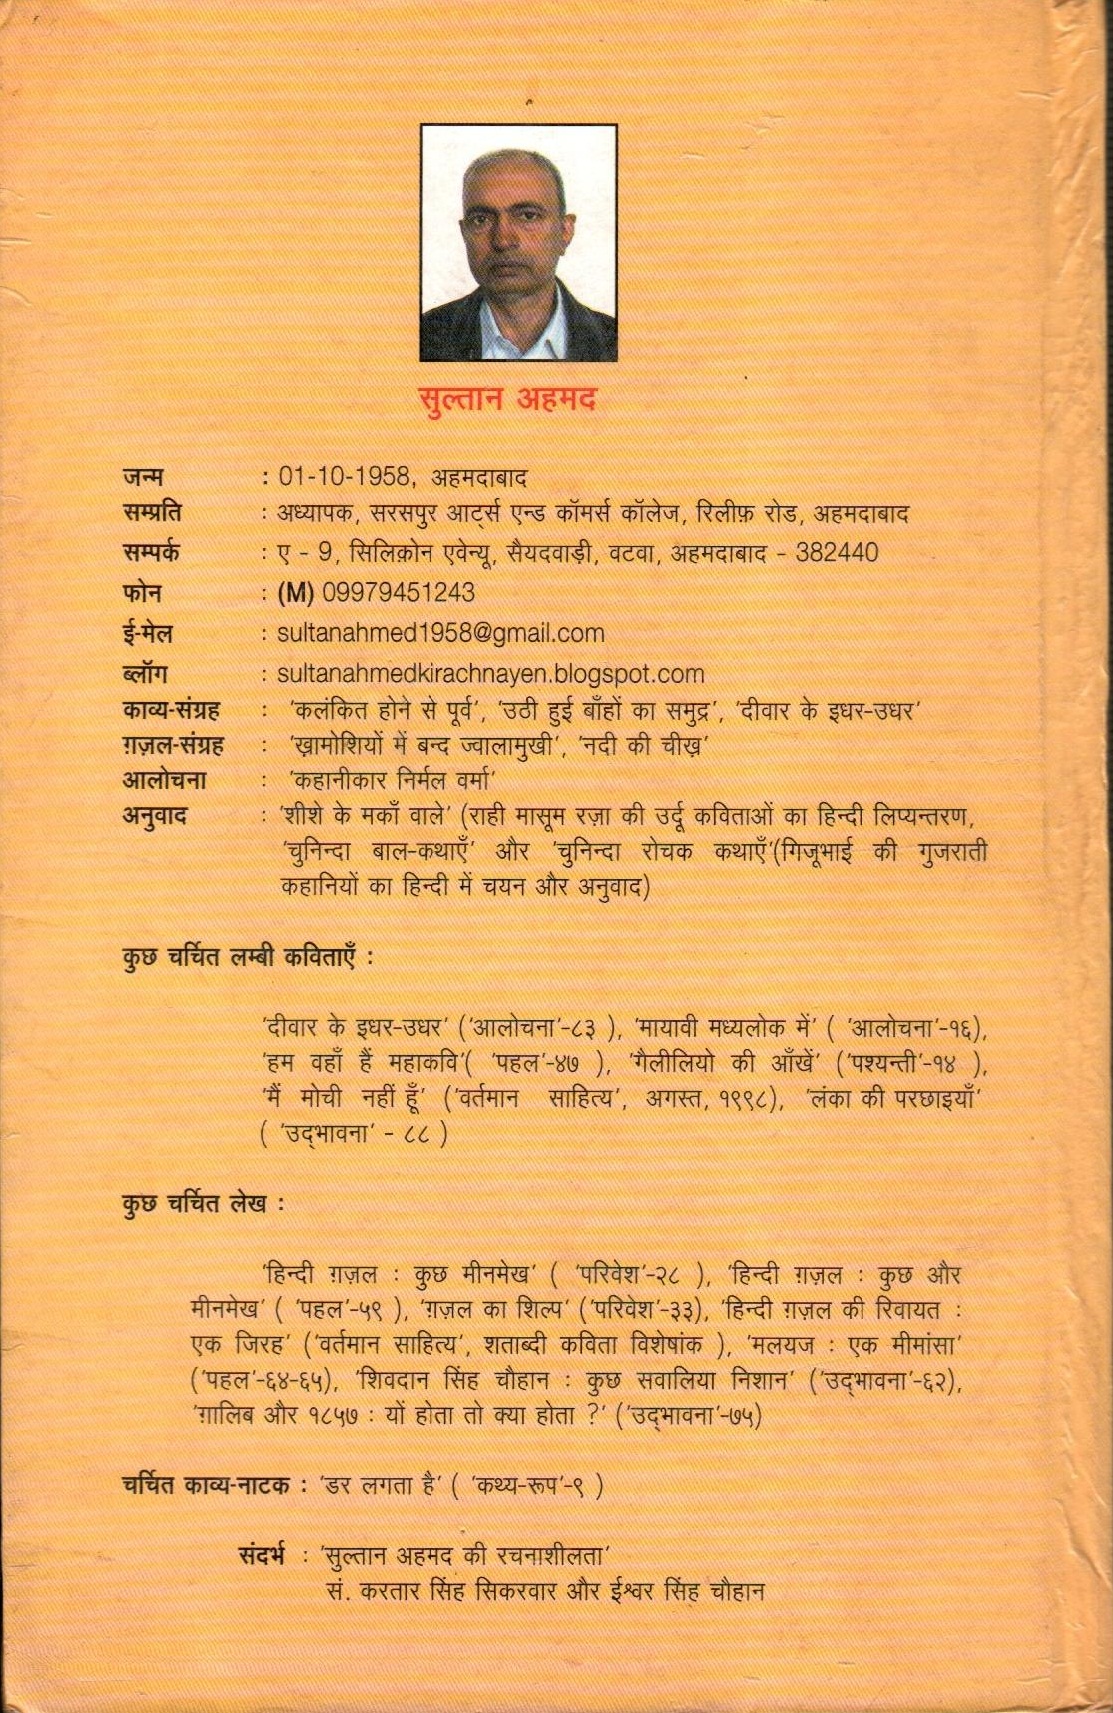 सुल्तान अहमद
जन्म : 01-10-1958, अहमदाबाद
सम्प्रति : अध्यापक, सरसपुर आर्ट्स एन्ड कॉमर्स कॉलेज, रिलीफ़ रोड, अहमदाबाद
सम्पर्क : ए - 9, सिलिक़ोन एवेन्यू, सैयदवाड़ी, वटवा, अहमदाबाद - 382440
फोन : (M) 09979451243
ई-मेल : sultanahmed1958@gmail.com
ब्लॉग : sultanahmedkirachnayen.blogspot.com
काव्य-संग्रह : 'कलंकित होने से पूर्व', 'उठी हुई बाँहों का समुद्र', 'दीवार के इधर-उधर'
ग़ज़ल-संग्रह : 'ख़ामोशियों में बन्द ज्वालामुखी', 'नदी की चीख़'
आलोचना : 'कहानीकार निर्मल वर्मा'
अनुवाद : 'शीशे के मकाँ वाले' (राही मासूम रज़ा की उर्दू कविताओं का हिन्दी लिप्यन्तरण,
'चुनिन्दा बाल-कथाएँ' और 'चुनिन्दा रोचक कथाएँ'(गिजूभाई की गुजराती
कहानियों का हिन्दी में चयन और अनुवाद)
कुछ चर्चित लम्बी कविताएँ :
'दीवार के इधर-उधर' ('आलोचना'-८३ ), 'मायावी मध्यलोक में' ( 'आलोचना'-१६),
'हम वहाँ हैं महाकवि'( 'पहल'-४७ ), 'गैलीलियो की आँखें' ('पश्यन्ती'-१४ ),
'मैं मोची नहीं हूँ' ('वर्तमान साहित्य', अगस्त, १९९८), 'लंका की परछाइयाँ'
( 'उद्‌भावना' - ८८ )
कुछ चर्चित लेख :
'हिन्दी ग़ज़ल : कुछ मीनमेख' ( 'परिवेश'-२८ ), 'हिन्दी ग़ज़ल : कुछ और
मीनमेख' ( 'पहल'-५९ ), 'ग़ज़ल का शिल्प' ('परिवेश'-३३), 'हिन्दी ग़ज़ल की रिवायत :
एक जिरह' ('वर्तमान साहित्य', शताब्दी कविता विशेषांक ), 'मलयज : एक मीमांसा'
('पहल'-६४-६५), 'शिवदान सिंह चौहान : कुछ सवालिया निशान' ('उद्‌भावना'-६२),
'ग़ालिब और १८५७ : यों होता तो क्या होता ?' ('उद्‌भावना'-७५)
चर्चित काव्य-नाटक : 'डर लगता है' ( 'कथ्य-रूप'-९ )
संदर्भ : 'सुल्तान अहमद की रचनाशीलता'
सं. करतार सिंह सिकरवार और ईश्वर सिंह चौहान